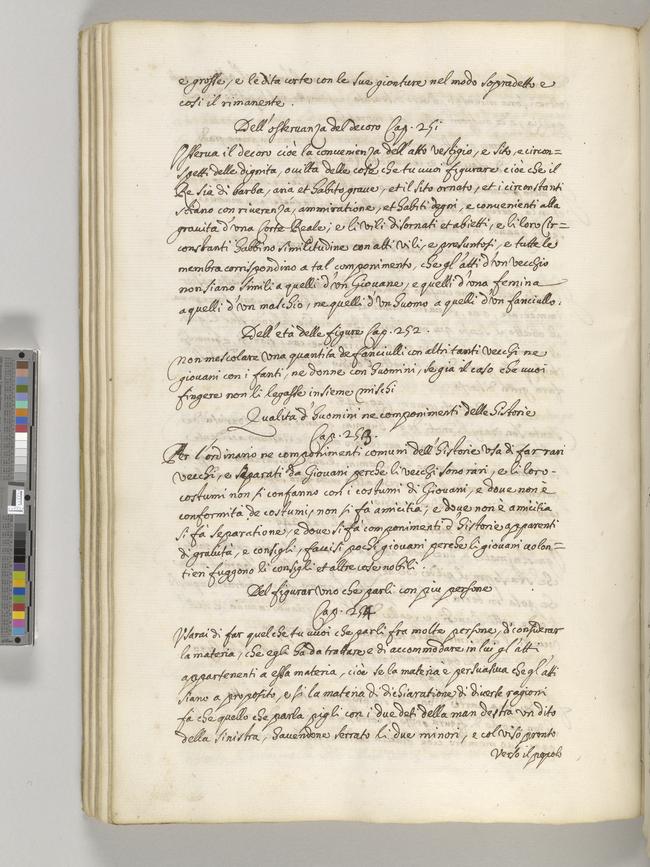 e grosse, e le dita corte con le sue gionture nel modo sopradetto e
cosi il rimanente.
Dell'osservanza del decoro Cap. 251
Osserva il decoro cioè la convenienza dell'atto vestigio, e sito, e circon=
spetti delle dignita, o viltà delle cose che tu vuoi figurare cioè che il
Re sia di barba, aria et habito grave, et il sito ornato, et i circonstanti
stiano con riverenza, ammiratione, et habiti degni, e convenienti alla
gravita d'una Corte Reale; e li vili disornati et abietti, e li loro Cir=
constanti habbino similitudine con atti vili, e presuntosi, e tutte le
membra corrispondino a tal componimento, che gl'atti d'un vecchio
non siano simili a quelli d'un Giovane, e quelli d'una femina
a quelli d'un maschio, ne quelli d'un huomo a quelli d'un fanciullo.
Dell'età delle figure Cap. 252.
Non mescolare una quantita de fanciulli con altri tanti vecchi ne
giovani con i fanti, ne donne con huomini, se già il caso che vuoi
fingere non li legasse insieme mischi
Qualita d'huomini ne componimenti delle historie
Cap. 253.
Per l'ordinario ne componimenti comuni dell'historie usa di far rari
vecchi, e separati da Giovani perche li vecchi sono rari, e li loro
costumi non si confanno con i costumi di Giovani, e dove non è
conformità de costumi, non si fà amicitia, e dove non è amicitia
si fà separatione, e dove si fà componimenti d'historie apparenti
di gravità, e consigli, faccisi pochi giovani perche li giovani volon=
tieri fuggono li consigli et altre cose nobili.
Del figurar uno che parli con piu persone
Cap. 254
Usarai di far quel che tu vuoi che parli fra molte persone, di considerar
la materia, che egli ha da trattare e di accommodare in lui gl'atti
appartenenti a essa materia, cioè se la materia è persuasiva che gl'atti
siano a proposito, e si la materia di dichiaratione di diverse ragioni
fà che quello che parla pigli con i due deti della man destra un dito
della sinistra, havendone serrato li due minori, e col viso pronto
verso il popolo